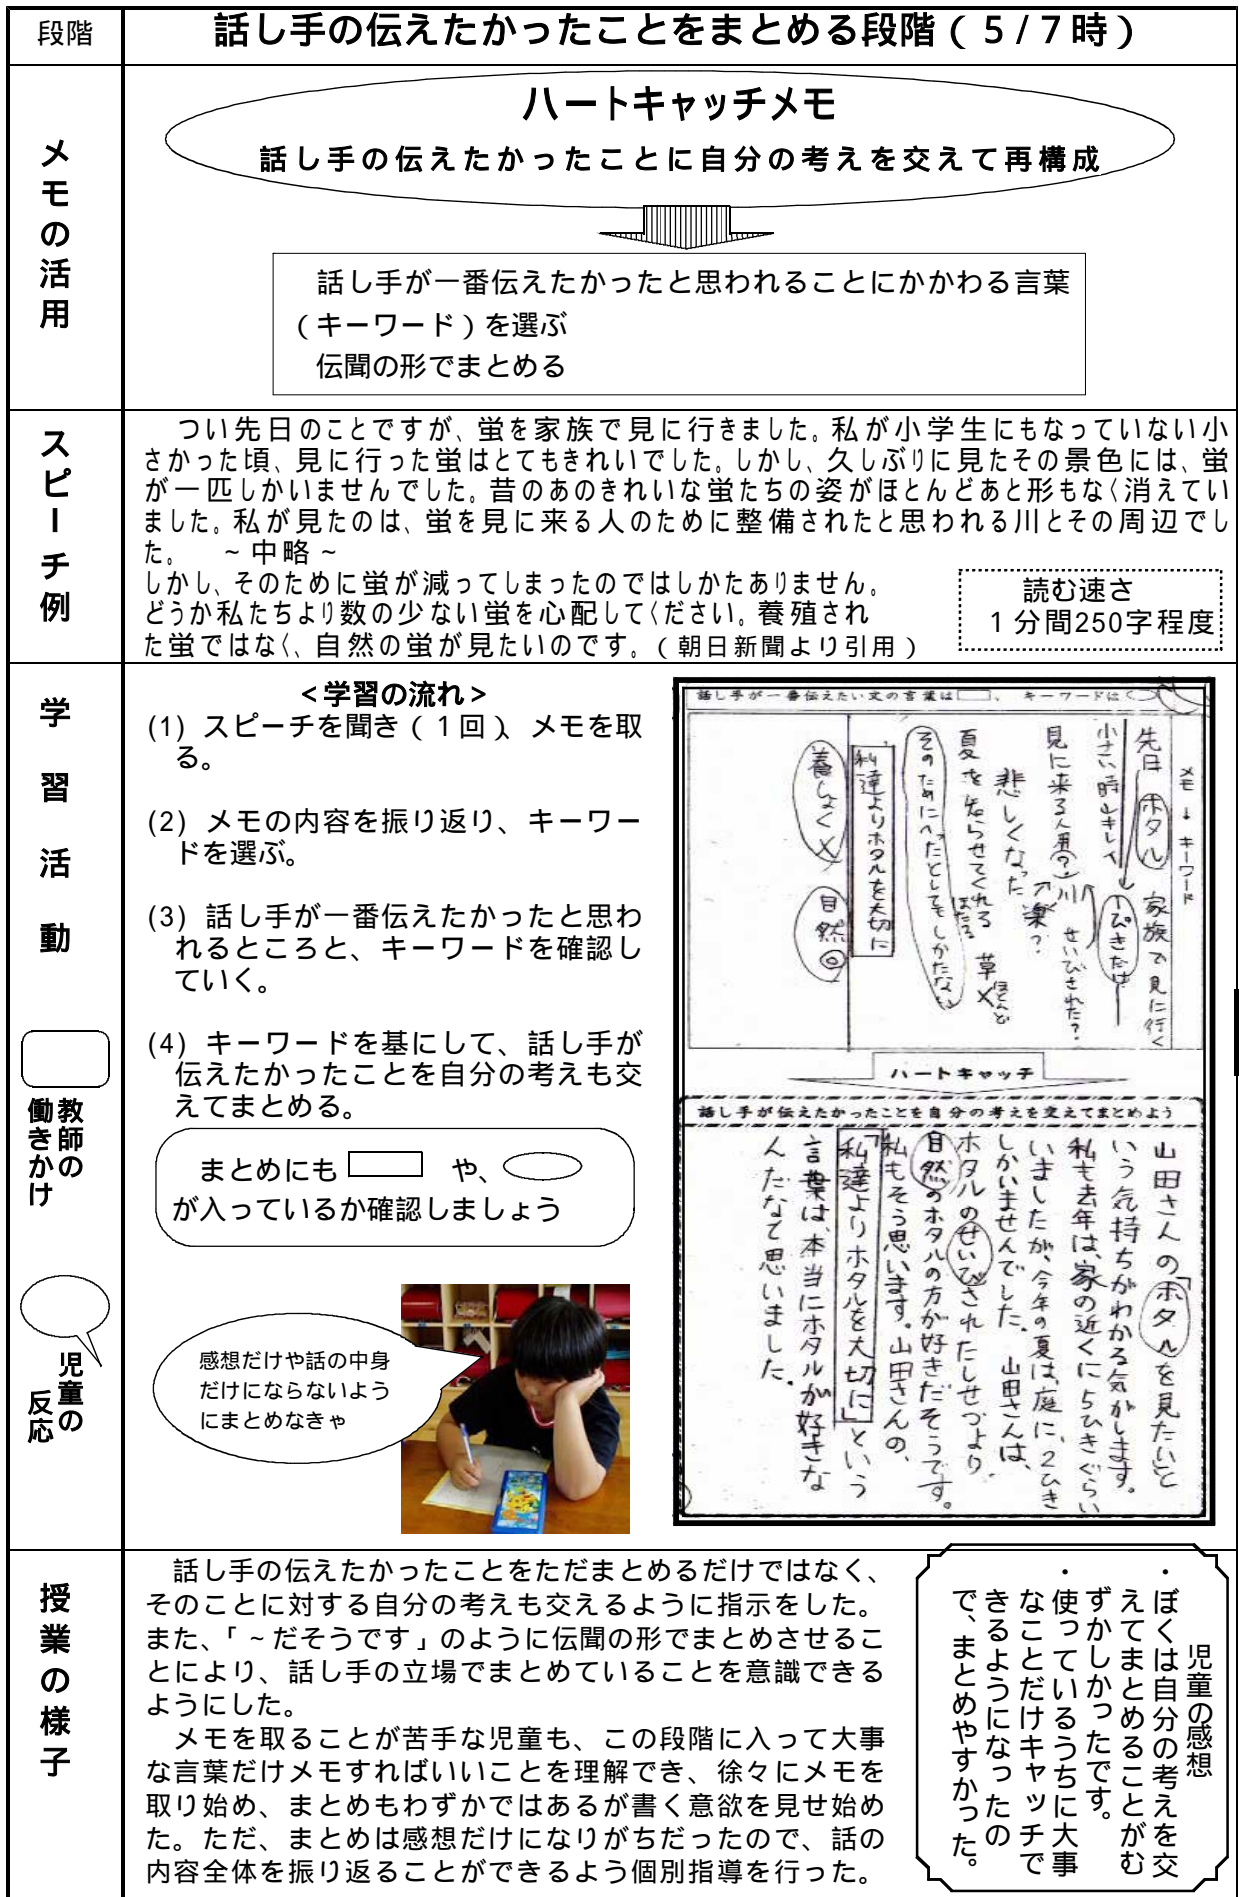 段階
話し手の伝えたかったことをまとめる段階(5/7時)
メモの活用
ハートキャッチメモ
話し手の伝えたかったことに自分の考えを交えて再構成
話し手が一番伝えたかったと思われることにかかわる言葉
(キーワード)を選ぶ
伝聞の形でまとめる
スピーチ例
つい先日のことですが、蛍を家族で見に行きました。私が小学生にもなっていない小
さかった頃、見に行った蛍はとてもきれいでした。しかし、久しぶりに見たその景色には、蛍
が一匹しかいませんでした。昔のあのきれいな蛍たちの姿がほとんどあと形もなく消えてい
ました。私が見たのは、蛍を見に来る人のために整備されたと思われる川とその周辺でし
た。 ~中略~
しかし、そのために蛍が減ってしまったのではしかたありません。
どうか私たちより数の少ない蛍を心配してください。養殖され
た蛍ではなく、自然の蛍が見たいのです。(朝日新聞より引用)
読む速さ
1分間250字程度
学習活動
教師の
働きかけ
児童の
反応
<学習の流れ>
(1) スピーチを聞き(1回)、メモを取
る。
(2) メモの内容を振り返り、キーワー
ドを選ぶ。
(3) 話し手が一番伝えたかったと思わ
れるところと、キーワードを確認し
ていく。
(4) キーワードを基にして、話し手が
伝えたかったことを自分の考えも交
えてまとめる。
まとめにも や、
が入っているか確認しましょう
感想だけや話の中身
だけにならないよう
にまとめなきゃ
話し手が一番伝えたい文の言葉は 、 キーワードは
メモ → キーワード
先日 ホタル 家族で見に行く
小さい時はキレイ → 1ぴきだけ
見に来る人用(?) 川 せいびされた?
悲しくなった 楽?
夏を知らせてくれる ほたる 草× ほとんど
そのためにへったとしてもしかたない
私達よりホタルを大切に
養しょく× 自然◎
ハートキャッチ
話し手が伝えたかったことを自分の考えを交えてまとめよう
山田さんの「ホタルを見たい」と
いう気持ちがわかる気がします。
私も去年は、家の近くに5ひきぐらい
いましたが、今年の夏は、庭に、2ひき
しかいませんでした。山田さんは、
ホタルのせいびされたしせつより、
自然のホタルの方が好きだそうです。
私もそう思います。山田さんの、
「私達よりホタルを大切に」という
言葉は、本当にホタルが好きな
んだなて思いました。
授業の様子
話し手の伝えたかったことをただまとめるだけではなく、
そのことに対する自分の考えも交えるように指示をした。
また、「~だそうです」のように伝聞の形でまとめさせるこ
とにより、話し手の立場でまとめていることを意識できる
ようにした。
メモを取ることが苦手な児童も、この段階に入って大事
な言葉だけメモすればいいことを理解でき、徐々にメモを
取り始め、まとめもわずかではあるが書く意欲を見せ始め
た。ただ、まとめは感想だけになりがちだったので、話の
内容全体を振り返ることができるよう個別指導を行った。
児童の感想
・ぼくは自分の考えを交
えてまとめることがむ
ずかしかったです。
・使っているうちに大事
なことだけキャッチで
きるようになったの
で、まとめやすかった。